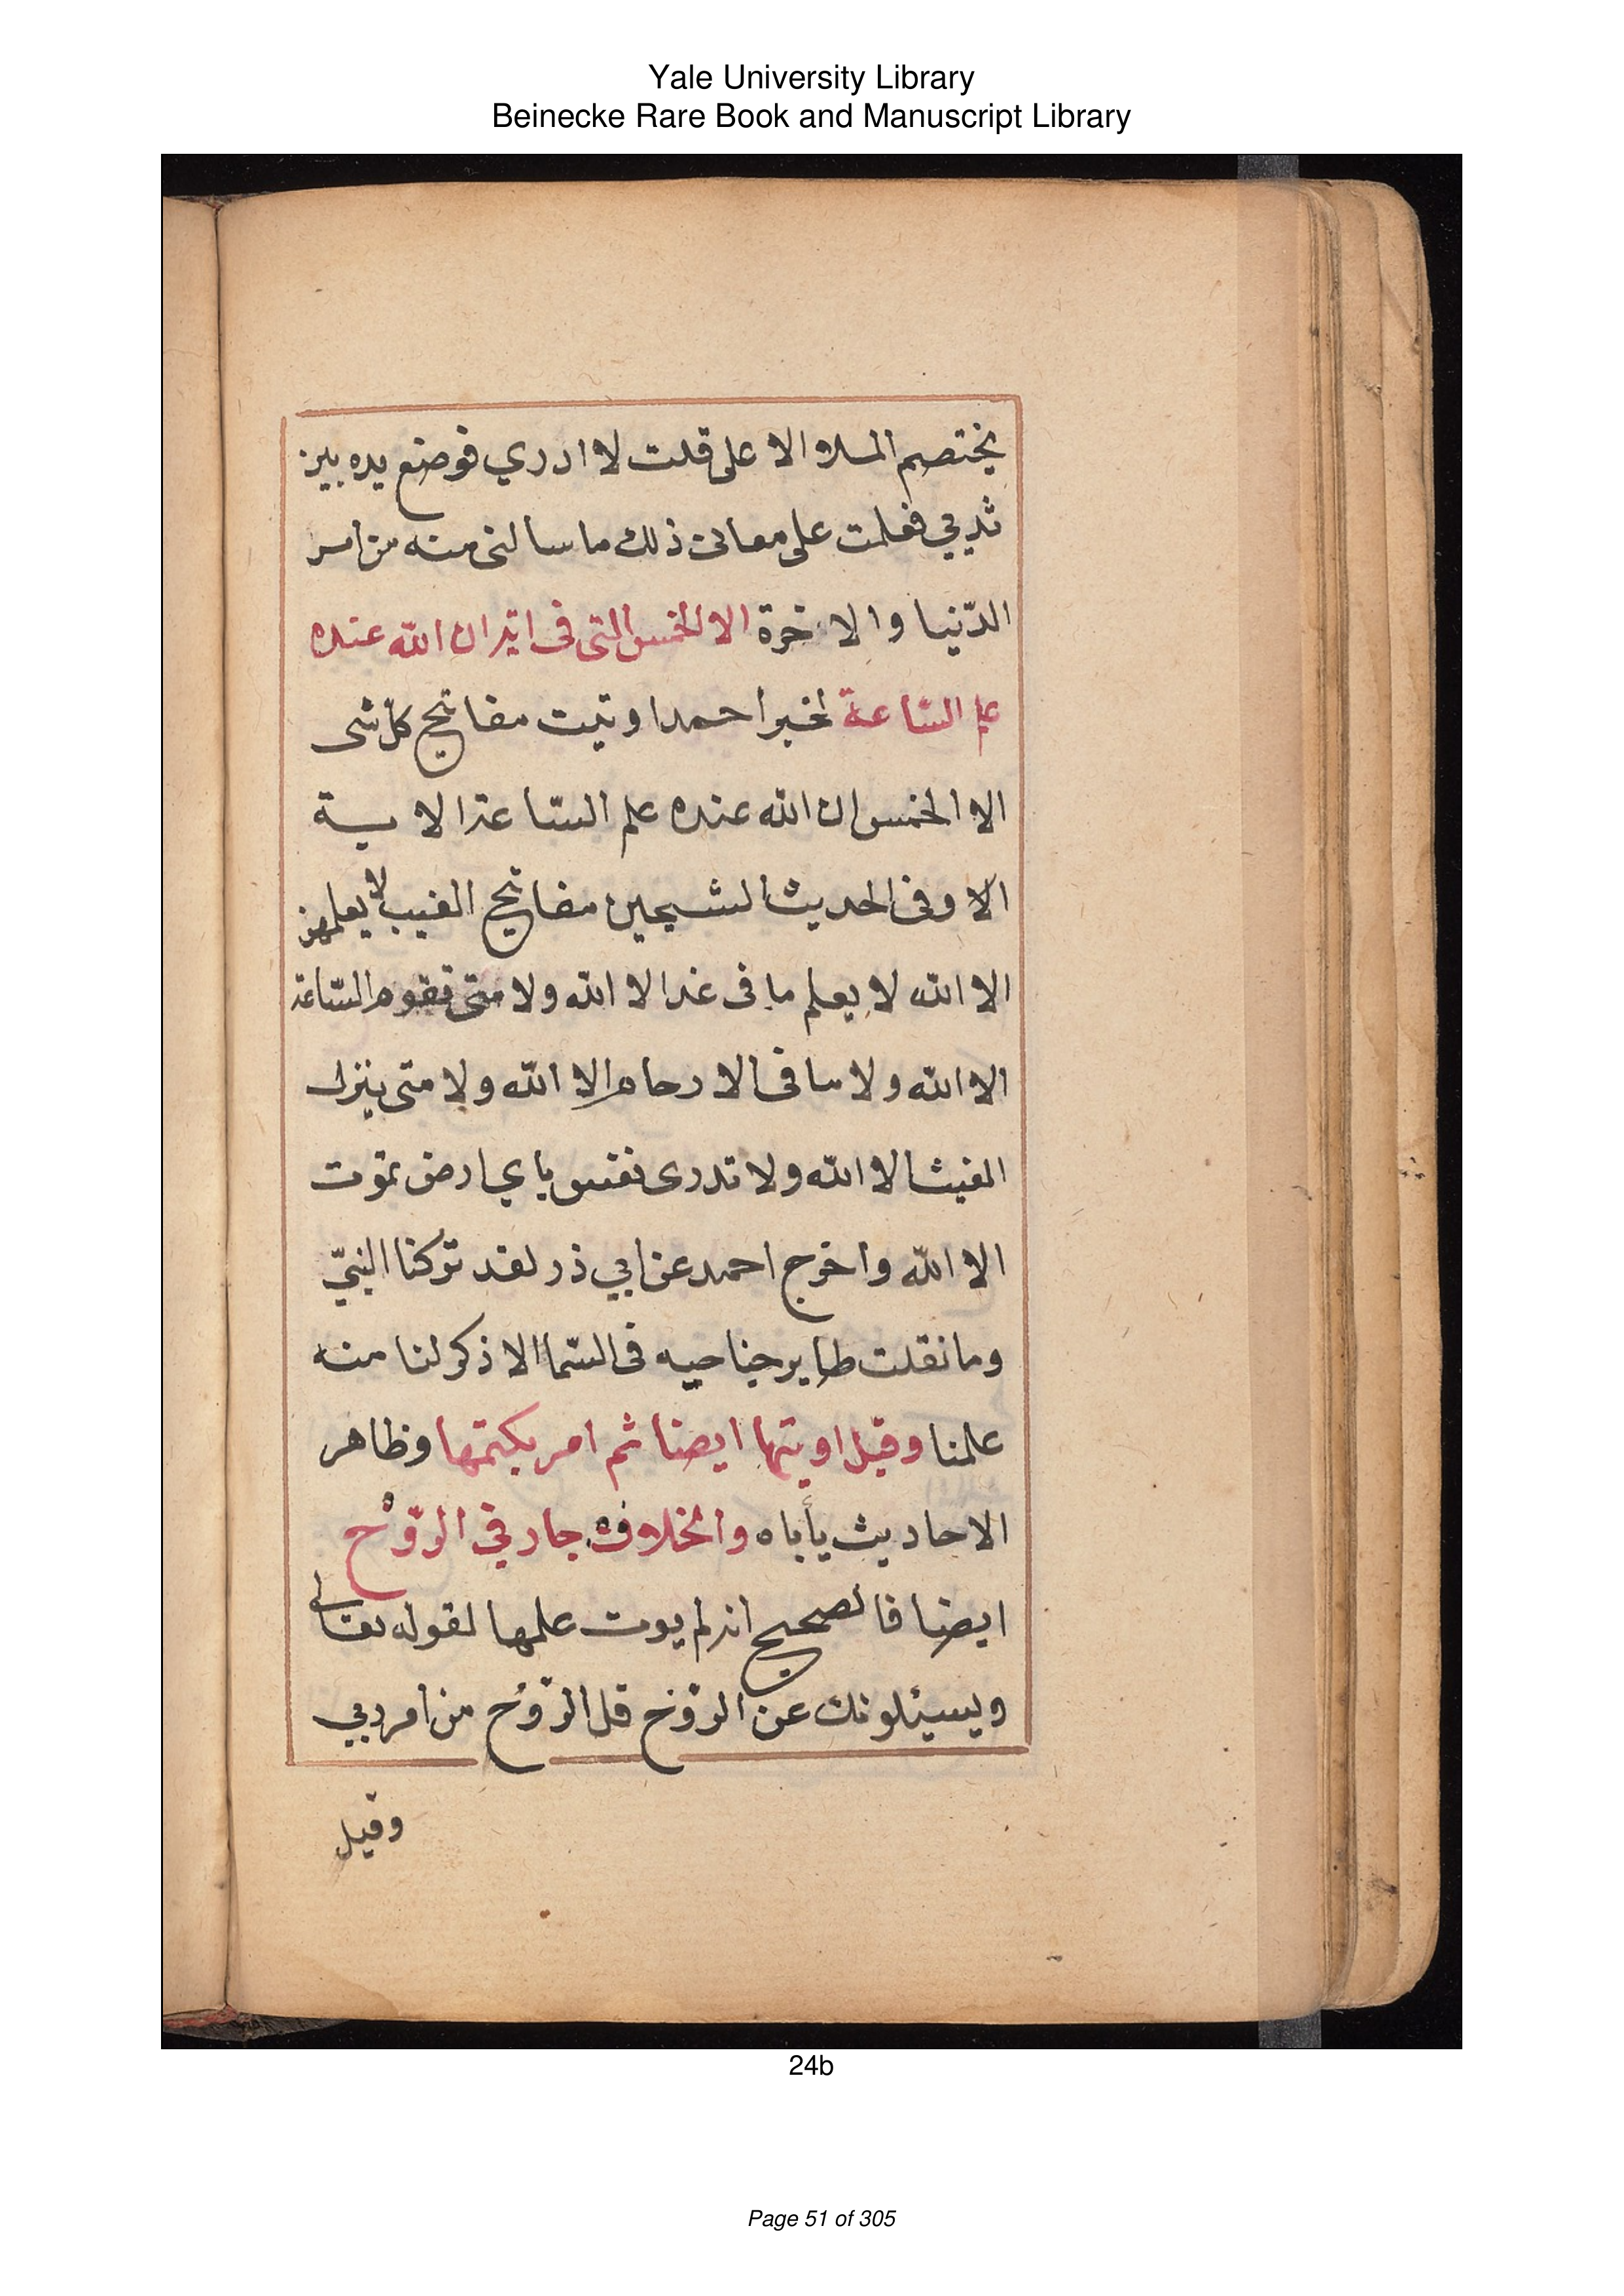 Yale University Library
Beinecke Rare Book and Manuscript Library
يختصم الملاو الاعلى قلت لا ادري فوضع يده بين
ثديي فعلمت على معانى ذلك ما سالنى منه من امر
الدّنيا والاخرة الا الخمس التى فى اية ان الله عنده
علم السّاعة لخبر احمد اوتيت مفاتيح كلّ شى
الا الخمس ان الله عنده علم السّاعة الاية
الا وفى الحديث الشيخين مفاتيح الغيب لا يعلمهن
الا الله لا يعلم ما فى غد الا الله ولا متى تقوم السّاعة
الا الله ولا ما فى الارحام الا الله ولا متى ينزل
الغيث الا الله ولا تدرى نفس باي ارض تموت
الا الله واخرج احمد عن ابي ذر لقد تركنا النبيّ
وما نقلت طاير جناحيه فى السّما الا ذكر لنا منه
علمنا وقيل اوتيها ايضا ثم امر بكتمها وظاهر
الاحاديث يأباه والخلاف جار في الرّوْح
ايضا فالصحيح انه لم يوت علمها لقوله تعالى
ويسئلونك عن الرّوْح قل الرّوُح من امر ربي
وقيل
24b
Page 51 of 305